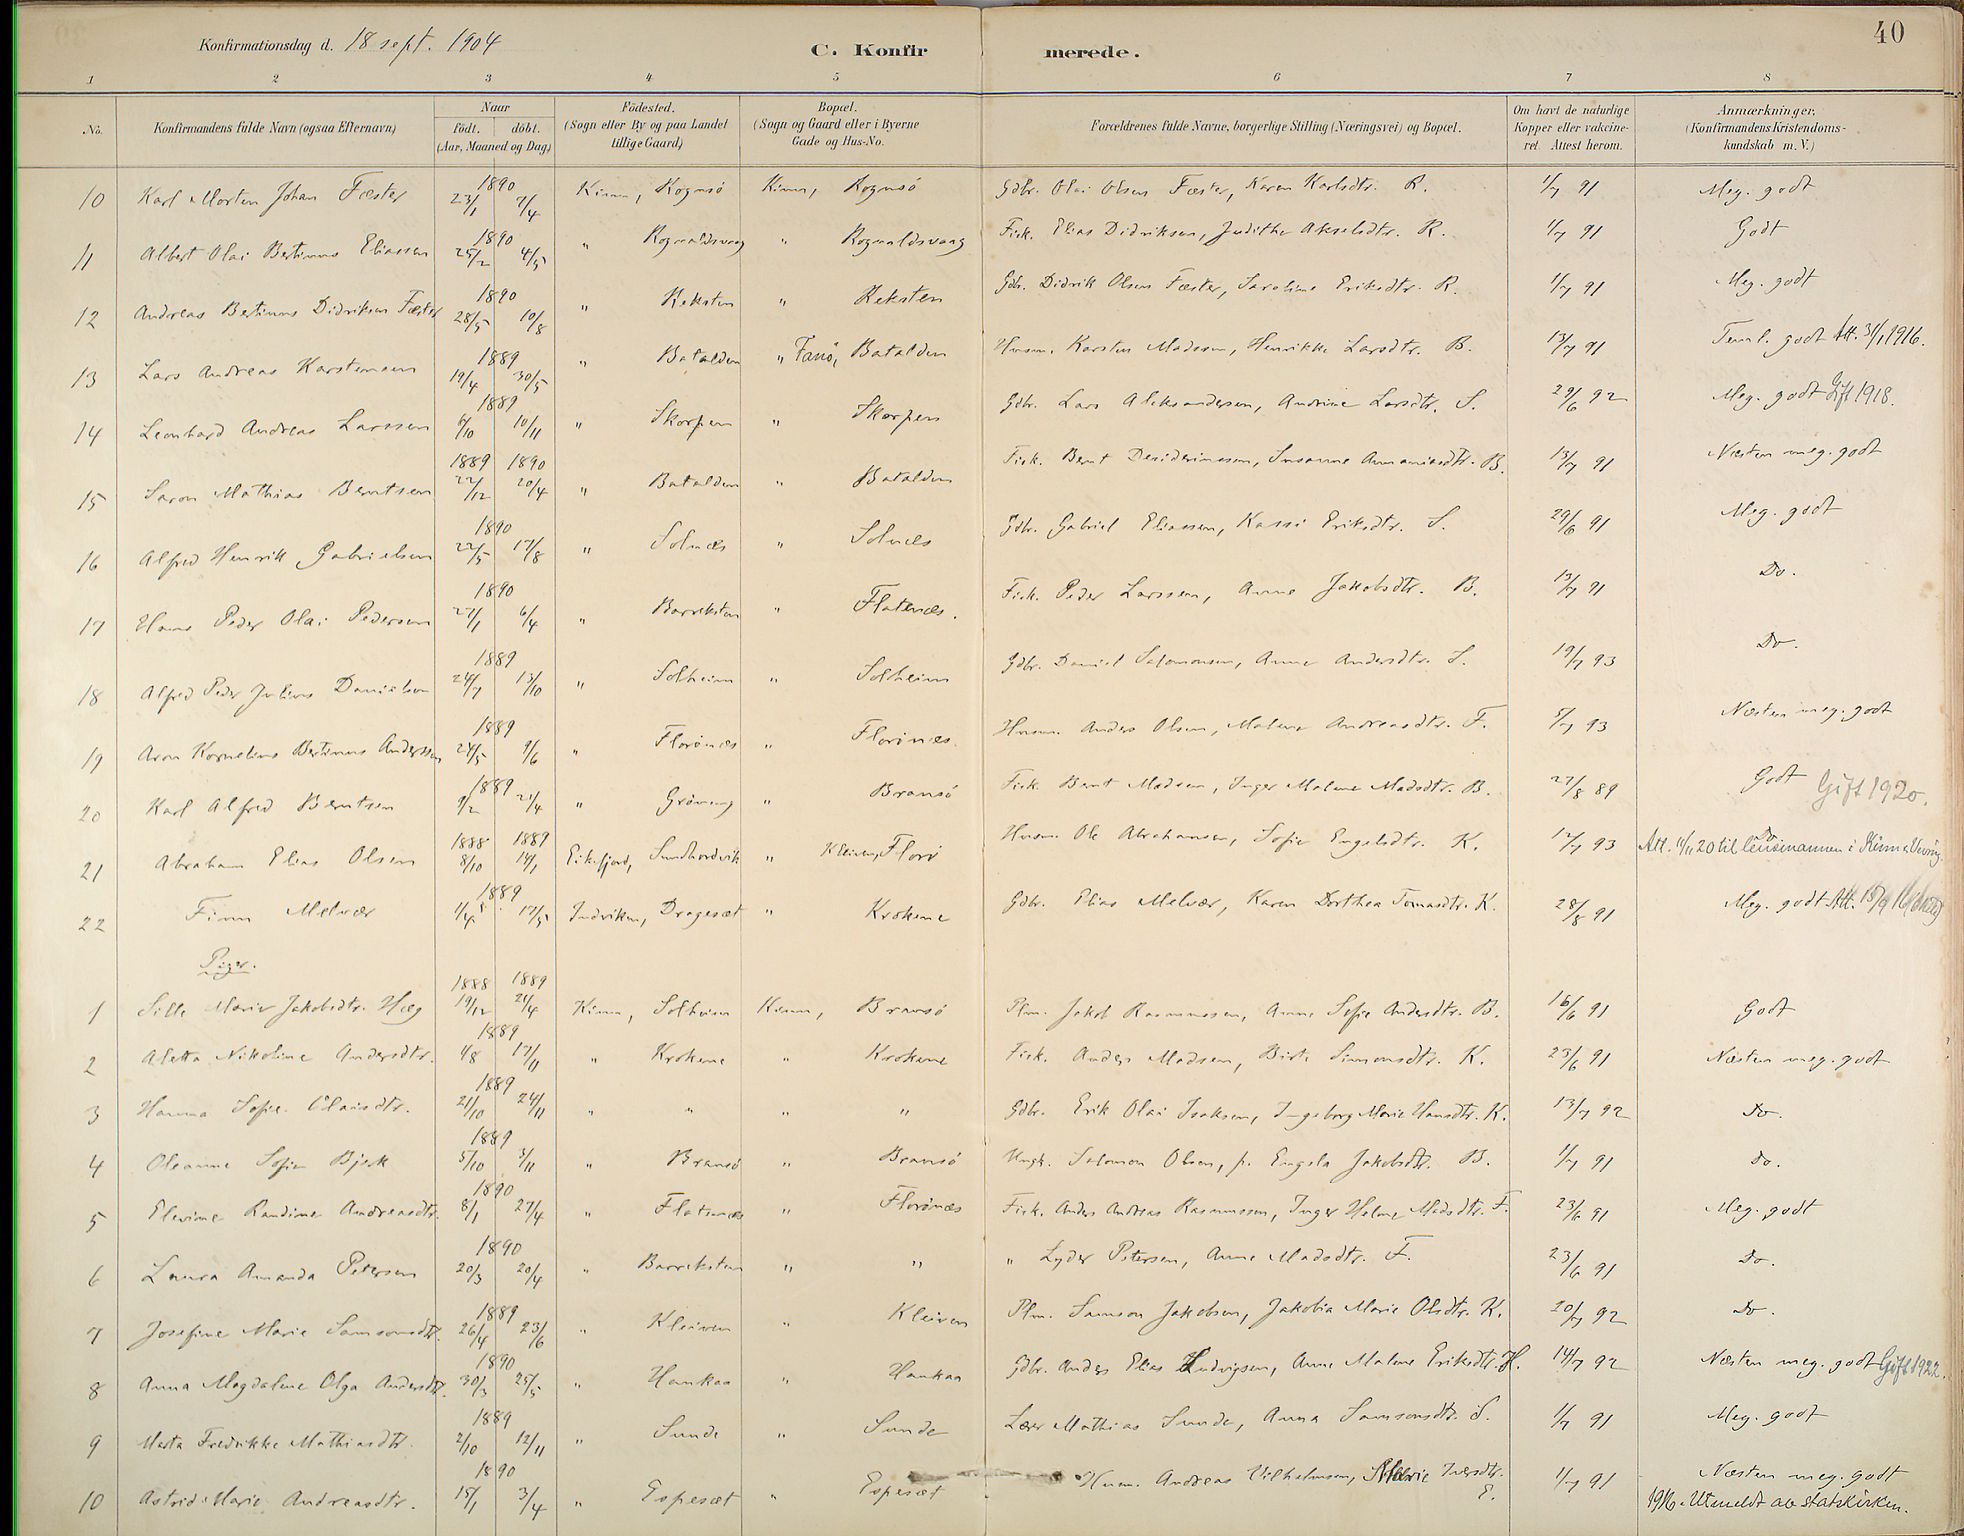 40
Konfirmationsdag d. 18 sept. 1904
C. Konfir merede.
1 2 3 4 5 6 7 8
No. Konfirmandens fulde Navn (ogsaa Efternavn) Naar født. døbt. (Aar, Maaned og Dag) Fødested. (Sogn eller By og paa Landet tillige Gaard) Bopæl. (Sogn og Gaard eller i Byerne Gade og Hus-No. Forældrenes fulde Navne, borgerlige Stilling (Næringsvei) og Bopæl. Om havt de naturlige Kopper eller vakcineret. Attest herom. Anmærkninger, (Konfirmandens Kristendomskundskab m. V.)
10 Karl Morten Johan Fæster 1890 23/1 7/4 Kinn, Rognsø Kinn, Rognsø Gdbr. Olai Olsen Fæster, Karen Karlsdtr. R. 1/7 91 Meg. godt
11 Albert Olai Bertinus Eliassen 1890 25/2 4/5 " Rognaldsvaag " Rognaldsvaag Fisk. Elias Didriksen, Judithe Akselsdtr. R. 1/7 91 Godt
12 Andreas Bertinus Didriksen Fæster 1890 28/5 10/8 " Reksten " Reksten Gdb. Didrik Olsen Fæster, Saroline Eriksdtr. R. 1/7 91 Meg. godt
13 Lars Andreas Karstensen 1889 19/4 30/5 " Batalden " Fanø, Batalden Husm. Karsten Madssen, Henrikke Larsdtr. B. 13/7 91 Teml. godt Att. 31/1 1916.
14 Leonhard Andreas Larssen 1889 6/10 10/11 " Skorpen " Skorpen Gdbr. Lars Aleksandersen, Andrine Larsdtr. S. 29/6 92 Meg. godt Gift 1918.
15 Saron Mathias Berntsen 1889 22/12 1890 20/4 " Batalden " Batalden Fisk. Bernt Desideriussen, Susanne Annaniasdtr. B. 13/7 91 Næsten meg. godt
16 Alfred Henrik Gabrielsen 1890 22/5 17/8 " Solnæs " Solnæs Gdbr. Gabriel Eliassen, Kassi Eriksdtr. S. 29/6 91 Meg. godt
17 Hans Peder Olai Pedersen 1890 27/1 6/4 " Barreksten " Flatenæs. Fisk. Peder Larssen, Anne Jakobsdtr. B. 13/7 91 Do.
18 Alfred Peder Julius Danielsen 1889 24/7 13/10 " Solheim " Solheim Gdbr. Daniel Salomonsen, Anne Andersdtr. S. 19/7 93 Do.
19 Aron Kornelius Bertinus Anderssen 1889 24/5 9/6 " Florønæs " Florønæs. Husm. Anders Olsen, Malene Andreasdtr. F. 5/7 93 Næsten meg. godt
20 Karl Alfred Berntsen 1889 9/2 21/4 " Grøning " Bransø Fisk. Bernt Madsen, Inger Malene Madsdtr. B. 27/8 89 Godt Gift 1920.
21 Abraham Elias Olsen 1888 8/10 1889 14/1 Eikefjord, Sundhordvik " Kleiven, Florø Husm. Ole Abrahamsen, Sofie Engelsdtr. K. 12/7 93 Do. Att. 11/11 20 til lensmannen i Kinn & Vevring.
22 Finn Melvær 1889 1/4 17/5 Indviken, Dragesæt " Krokene Gdbr. Elias Melvær, Karen Dorthea Tomasdtr. K. 28/8 91 Meg. godt Att. 15/9 16
Piger.
1 Sille Marie Jakobsdtr. Hæg 1888 19/12 1889 21/4 Kinn, Solheim Kinn, Bransø Plm. Jakob Rasmussen, Anne Sofie Andersdtr. B. 16/6 91 Godt
2 Aletta Nikoline Andersdtr. 1889 4/8 17/11 " Krokene " Krokene Fisk. Anders Madsen, Birte Simonsdtr. K. 23/6 91 Næsten meg. godt
3 Hanna Sofie Olaisdtr. 1889 21/10 24/11 " " " " Gdbr. Erik Olai Isaksen, Ingeborg Marie Hansdtr. K. 13/7 92 Do.
4 Oleanne Sofie Bjerk 1889 5/10 3/11 " Bransø " Bransø Ungk. Salomon Olsen, p. Engela Jakobsdtr. B. 1/7 91 Do.
5 Elevine Randine Andreasdtr. 1890 8/1 27/4 " Flatenæs " Florønæs Fisk. Anders Andreas Rasmussen, Inger Helene Madsdtr. F. 23/6 91 Meg. godt
6 Laura Amanda Petersen 1890 20/3 20/4 " Barreksten " " " Lyder Petersen, Anne Madsdtr. F. 23/6 91 Do.
7 Josefine Marie Samsonsdtr. 1889 26/4 23/6 " Kleiven " Kleiven Plm. Samson Jakobsen, Jakobia Marie Olsdtr. K. 20/7 92 Do.
8 Anna Magdalene Olga Andersdtr. 1890 30/3 25/5 " Haukaa " Haukaa Gdbr. Anders Elias Ludvigsen, Anne Malene Eriksdtr. H. 14/7 92 Næsten meg. godt Gift 1922.
9 Marta Fredrikke Mathiasdtr. 1889 2/10 12/11 " Sunde " Sunde Lærer Mathias Sunde, Anna Samsonsdtr. S. 1/7 91 Meg. godt
10 Astrid Marie Andreasdtr. 1890 15/1 3/4 " Espesæt " Espesæt Husm. Andreas Vilhelmsen, Marie Iversdtr. E. 1/7 91 Næsten meg. godt
1916. Utmeldt av statskirken.